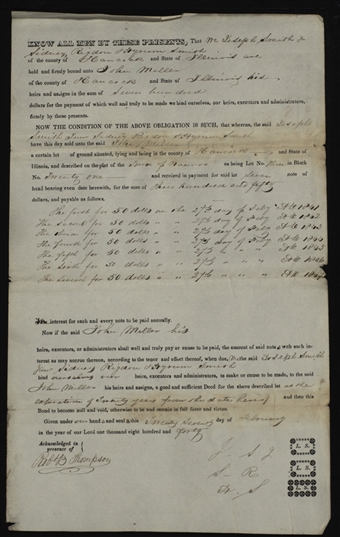 KNOW ALL MEN BY THESE PRESENTS, That We Joseph Smith Jr
Sidney Rigdon & Hyrum Smith
of the county of Hancock and State of Illinois are
held and firmly bound unto John Miller
of the county of Hancock & Illinois his
heirs and assigns in the sum of Seven hundred
dollars for the payment of which well and truly to be made we bind ourselves, our heirs, executors and administrators,
firmly by these presents.
NOW THE CONDITION OF THE ABOVE OBLIGATION IS SUCH, that whereas, the said Joseph
Smith Junr Sidney Rigdon & Hyrum Smith
have this day sold unto the said John Miller
a certain lot of ground situated, lying and being in the county of Hancock
Illinois, and described on the plat of the Town of Nauvoo as being Lot No. in Block
No. Twenty one and received in payment for said lot Seven note of
hand bearing even date herewith, for the sum of Three hundred and fifty
dollars, and payable as follows.
The first for 50 dolls on the 27th day of Feby 1841
The second for 50 dolls " " 27th day of Feby 1842
The third for 50 dolls " " 27th day of Feby 1843
The fourth for 50 dolls " " 27th day of Feby 1844
The fifth for 50 dolls " " 27th 1845
The sixth for 50 dolls " " 27th " " 1846
The seventh for 50 dolls " " 27th " "
interest for each and every note to be paid annually.
Now if the said John Miller his
heirs, executors, or administrators shall well and truly pay or cause to be paid, the amount of said note s with each
interest as may accrue thereon, according to the tenor and effect thereof, when due, We the said Joseph Smith
Jun Sidney Rigdon & Hyrum Smith
bind ourselves our heirs, executors and administrators, to make or cause to be made, to the said
John Miller his heirs and assigns, a good and sufficient Deed for the above described lot at the
expiration of Twenty years from the date hereof and then this
Bond to become null and void, otherwise to be and remain in full force and virtue.
Given under our hand and seal s this Twenty Seventh day of February
in the year of our Lord one thousand eight hundred and forty
Acknowledged in
presence of
Robt B Thompson
J S J L. S.
S R L. S.
H S L. S.